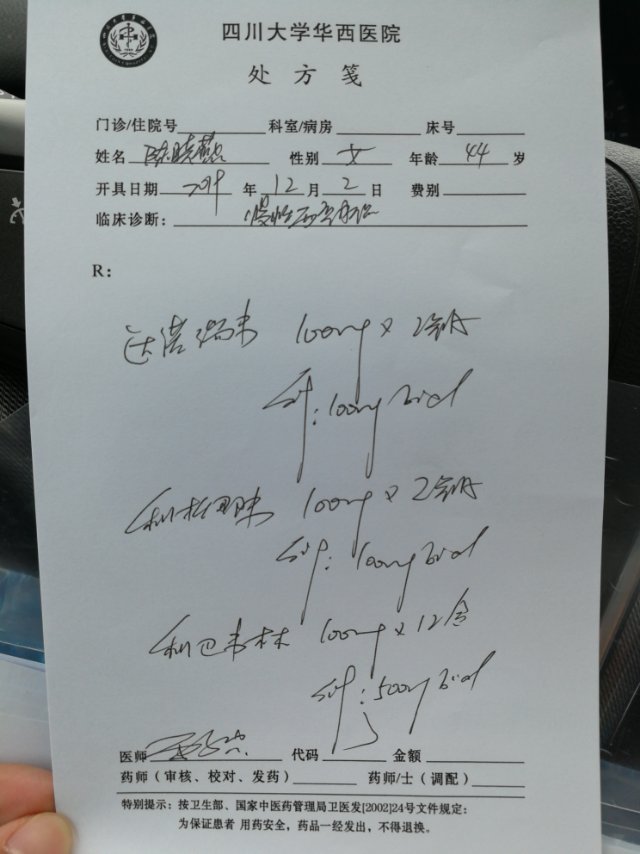 四川大学华西医院
处方笺
门诊/住院号 科室/病房 床号
姓名 性别 女 年龄 44 岁
开具日期 2019 年 12 月 2 日 费别
临床诊断：
R：
达诺瑞韦 100mg x 2
Sig: 100mg bid
利托那韦 100mg x 2
Sig: 100mg bid
利巴韦林 100mg x 12盒
Sig: 500mg bid
医师 代码 金额
药师（审核、校对、发药） 药师/士（调配）
特别提示：按卫生部、国家中医药管理局卫医发[2002]24号文件规定：
为保证患者 用药安全，药品一经发出，不得退换。